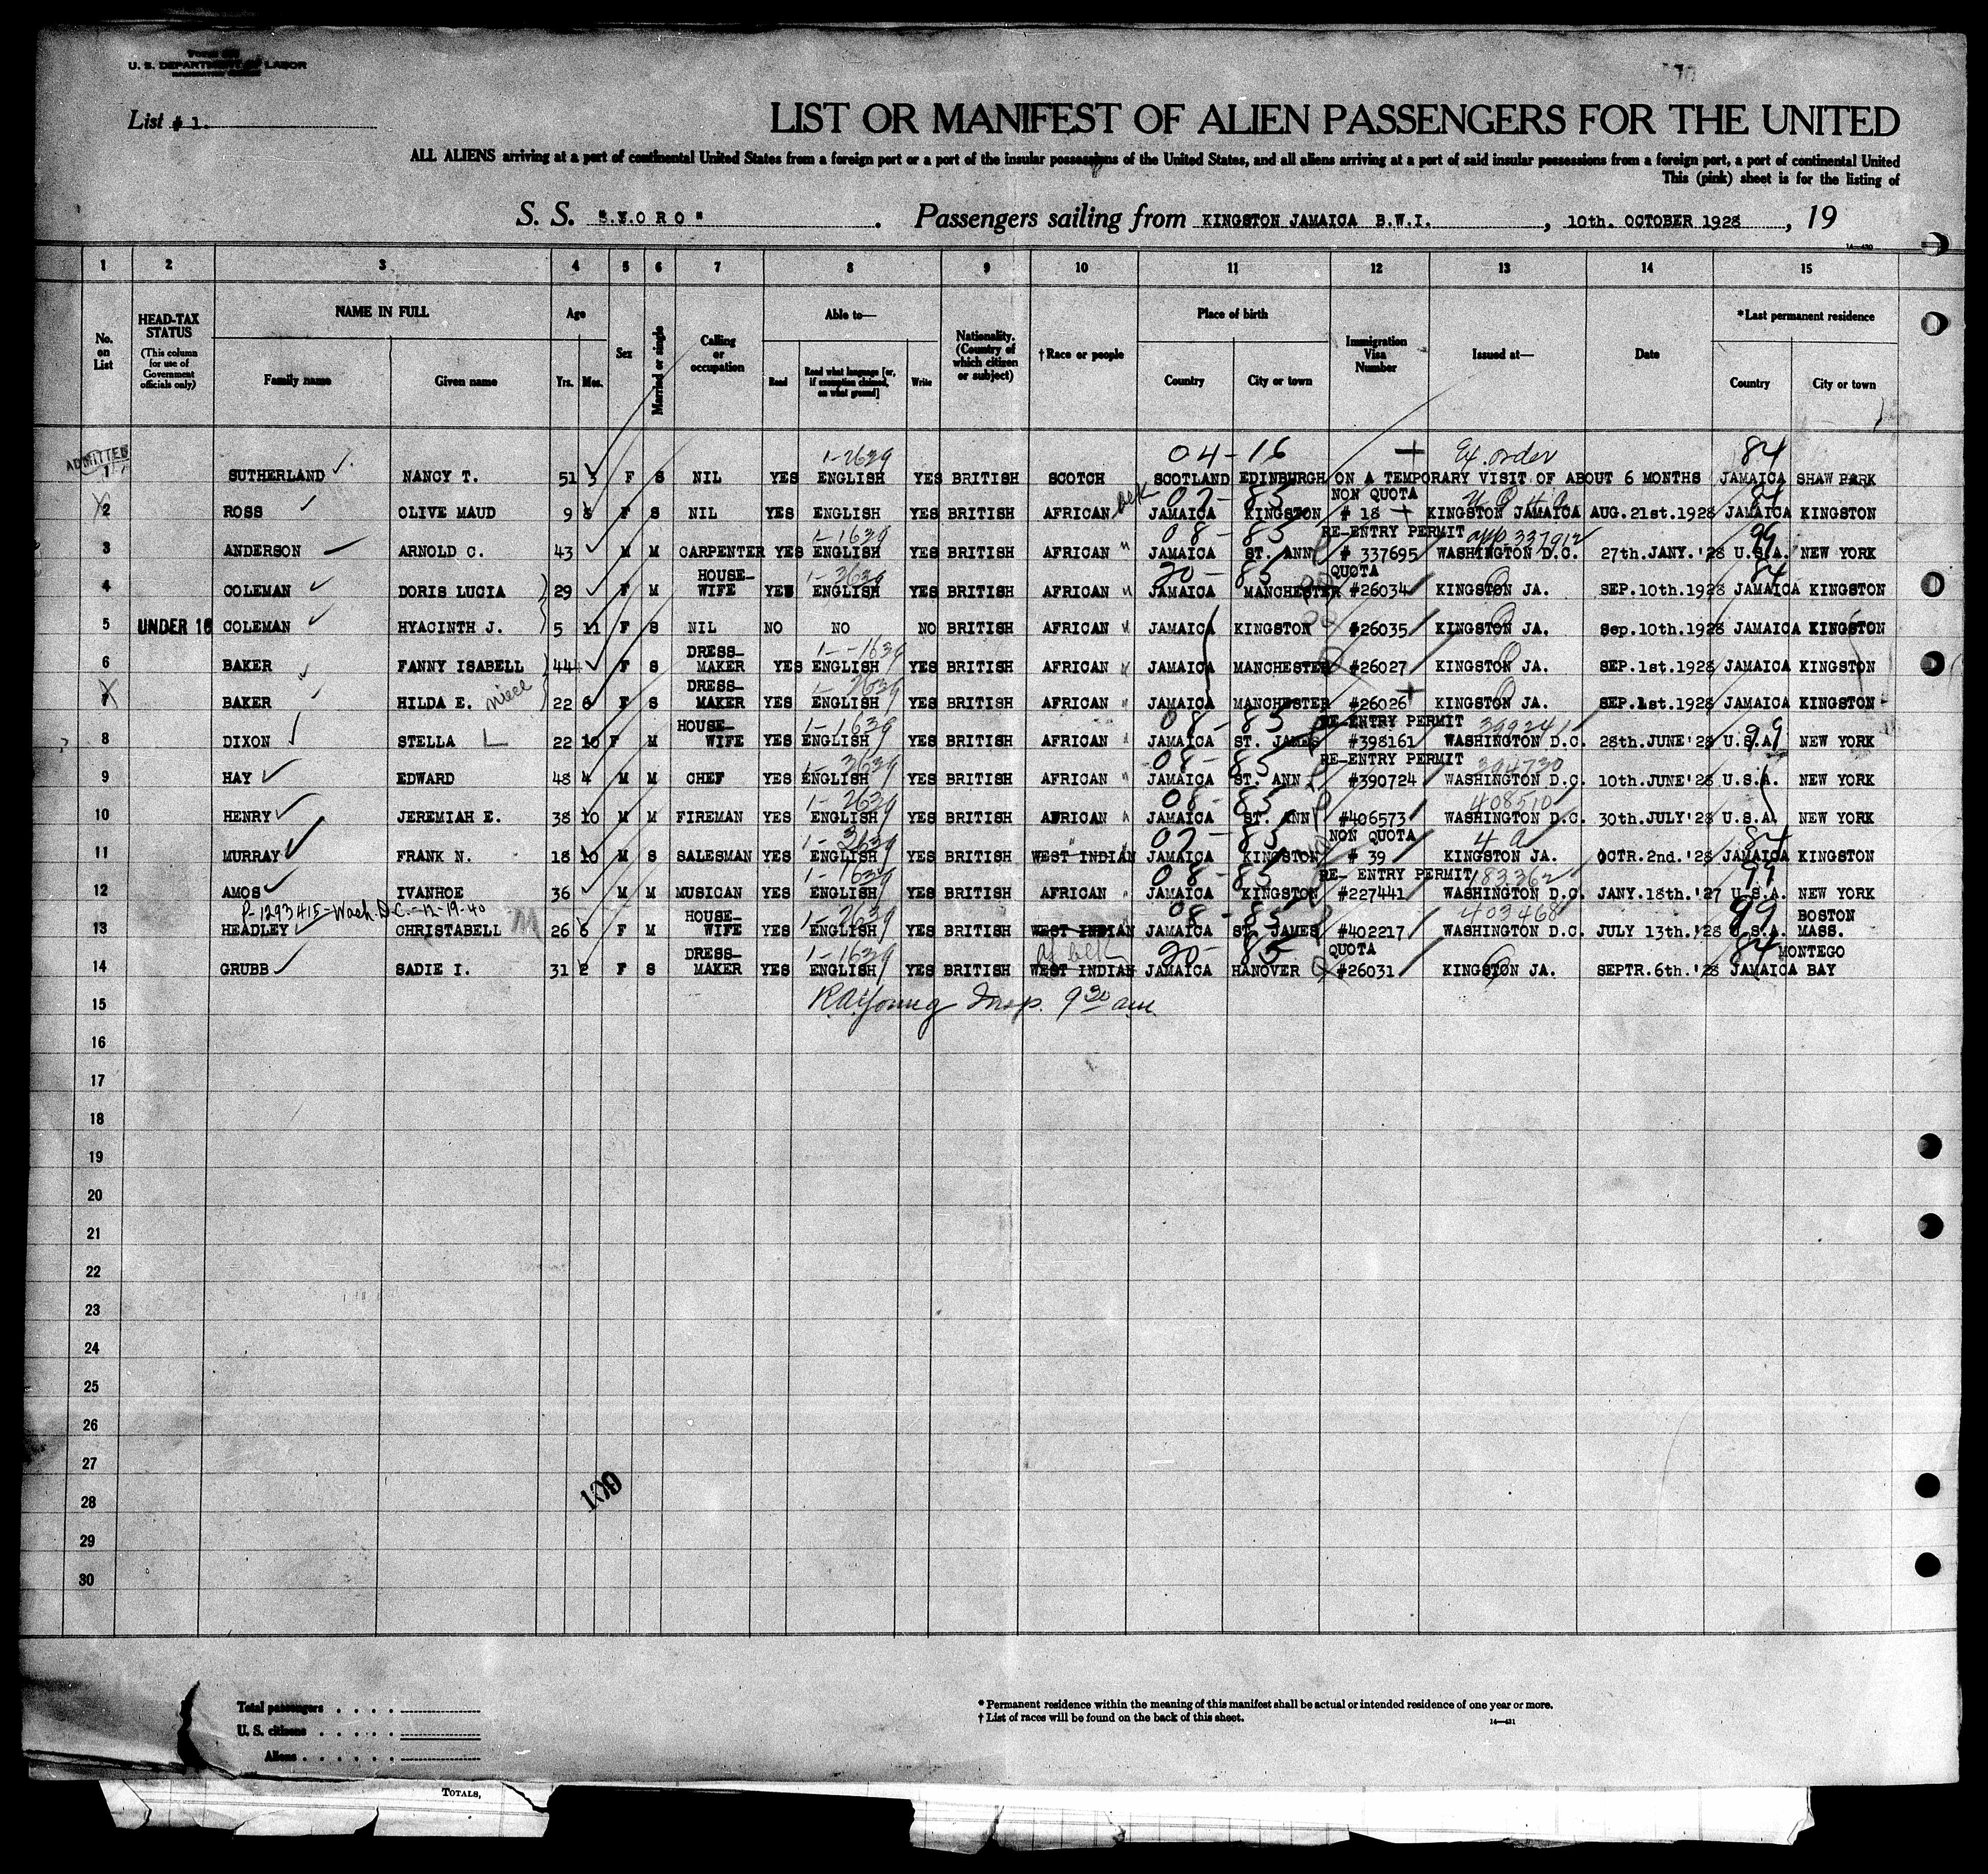 U. S. DEPARTMENT OF LABOR
List # 1.
LIST OR MANIFEST OF ALIEN PASSENGERS FOR THE UNITED
ALL ALIENS arriving at a port of continental United States from a foreign port or a port of the insular possessions of the United States, and all aliens arriving at a port of said insular possessions from a foreign port, a port of continental United
This (pink) sheet is for the listing of
S. S. Passengers sailing from KINGSTON JAMAICA B.W.I. , 10th. OCTOBER 1928 , 19
14—430
1 2 3 4 5 6 7 8 9 10 11 12 13 14 15
No. on List
HEAD-TAX STATUS (This column for use of Government officials only)
NAME IN FULL
Family name Given name
Age
Yrs. Mos.
Sex
Married or single
Calling or occupation
Able to—
Read Read what language [or, if exemption claimed, on what ground] Write
Nationality. (Country of which citizen or subject)
† Race or people
Place of birth
Country City or town
Immigration Visa Number
Issued at—
Date
*Last permanent residence
Country City or town
ADMITTED 1-2639 04-16 + Ex. order 84
1 SUTHERLAND NANCY T. 51 3 F S NIL YES ENGLISH YES BRITISH SCOTCH SCOTLAND EDINBURGH ON A TEMPORARY VISIT OF ABOUT 6 MONTHS JAMAICA SHAW PARK
blk 07-85 NON QUOTA 84
2 ROSS OLIVE MAUD 9 F S NIL YES ENGLISH YES BRITISH AFRICAN JAMAICA KINGSTON # 18 + KINGSTON JAMAICA AUG.21st.1928 JAMAICA KINGSTON
1-1639 08-85 RE-ENTRY PERMIT app 337912 99
3 ANDERSON ARNOLD C. 43 M M CARPENTER YES ENGLISH YES BRITISH AFRICAN " JAMAICA ST. ANN # 337695 WASHINGTON D.C. 27th.JANY.'28 U.S.A. NEW YORK
HOUSE- 1-3639 20-85 QUOTA 84
4 COLEMAN DORIS LUCIA 29 F M WIFE YES ENGLISH YES BRITISH AFRICAN " JAMAICA MANCHESTER #26034 KINGSTON JA. SEP.10th.1928 JAMAICA KINGSTON
5 UNDER 16 COLEMAN HYACINTH J. 5 11 F S NIL NO NO NO BRITISH AFRICAN " JAMAICA KINGSTON #26035 KINGSTON JA. Sep.10th.1928 JAMAICA KINGSTON
DRESS- 1--1639
6 BAKER FANNY ISABELL 44 F S MAKER YES ENGLISH YES BRITISH AFRICAN " JAMAICA MANCHESTER #26027 KINGSTON JA. SEP.1st.1928 JAMAICA KINGSTON
niece DRESS- 1-2639 +
7 BAKER HILDA E. 22 6 F S MAKER YES ENGLISH YES BRITISH AFRICAN " JAMAICA MANCHESTER #26026 KINGSTON JA. SEP.1st.1928 JAMAICA KINGSTON
HOUSE- 1-1639 08-85 RE-ENTRY PERMIT 99
8 DIXON STELLA 22 10 F M WIFE YES ENGLISH YES BRITISH AFRICAN " JAMAICA ST. JAMES #398161 WASHINGTON D.C. 28th.JUNE'28 U.S.A. NEW YORK
1-3639 08-85 RE-ENTRY PERMIT 394730
9 HAY EDWARD 48 4 M M CHEF YES ENGLISH YES BRITISH AFRICAN " JAMAICA ST. ANN #390724 WASHINGTON D.C. 10th.JUNE'28 U.S.A. NEW YORK
1-2639 08-85 408510
10 HENRY JEREMIAH E. 38 10 M M FIREMAN YES ENGLISH YES BRITISH AFRICAN " JAMAICA ST. ANN #406573 WASHINGTON D.C. 30th.JULY'28 U.S.A. NEW YORK
1-3639 07-85 NON QUOTA 4 a 84
11 MURRAY FRANK N. 18 10 M S SALESMAN YES ENGLISH YES BRITISH WEST INDIAN JAMAICA KINGSTON # 39 KINGSTON JA. OCTR.2nd.'28 JAMAICA KINGSTON
1-1639 08-85 RE- ENTRY PERMIT 183362 99
12 AMOS IVANHOE 36 M M MUSICAN YES ENGLISH YES BRITISH AFRICAN " JAMAICA KINGSTON #227441 WASHINGTON D.C. JANY.18th.'27 U.S.A. NEW YORK
P-1293415-Wash.D.C.-12-19-40 HOUSE- 1-2639 08-85 403468 99 BOSTON
13 HEADLEY CHRISTABELL 26 6 F M WIFE YES ENGLISH YES BRITISH WEST INDIAN JAMAICA ST. JAMES #402217 WASHINGTON D.C. JULY 13th.'28 U.S.A. MASS.
DRESS- 1-1639 Af blk 20-85 QUOTA 84 MONTEGO
14 GRUBB SADIE I. 31 2 F S MAKER YES ENGLISH YES BRITISH WEST INDIAN JAMAICA HANOVER #26031 KINGSTON JA. SEPTR.6th.'28 JAMAICA BAY
15 R.A.Young Insp. 9 30 am.
16
17
18
19
20
21
22
23
24
25
26
27
28
29
30
Total passengers
U. S. citizens
Aliens
* Permanent residence within the meaning of this manifest shall be actual or intended residence of one year or more.
† List of races will be found on the back of this sheet.
14—431
TOTALS,